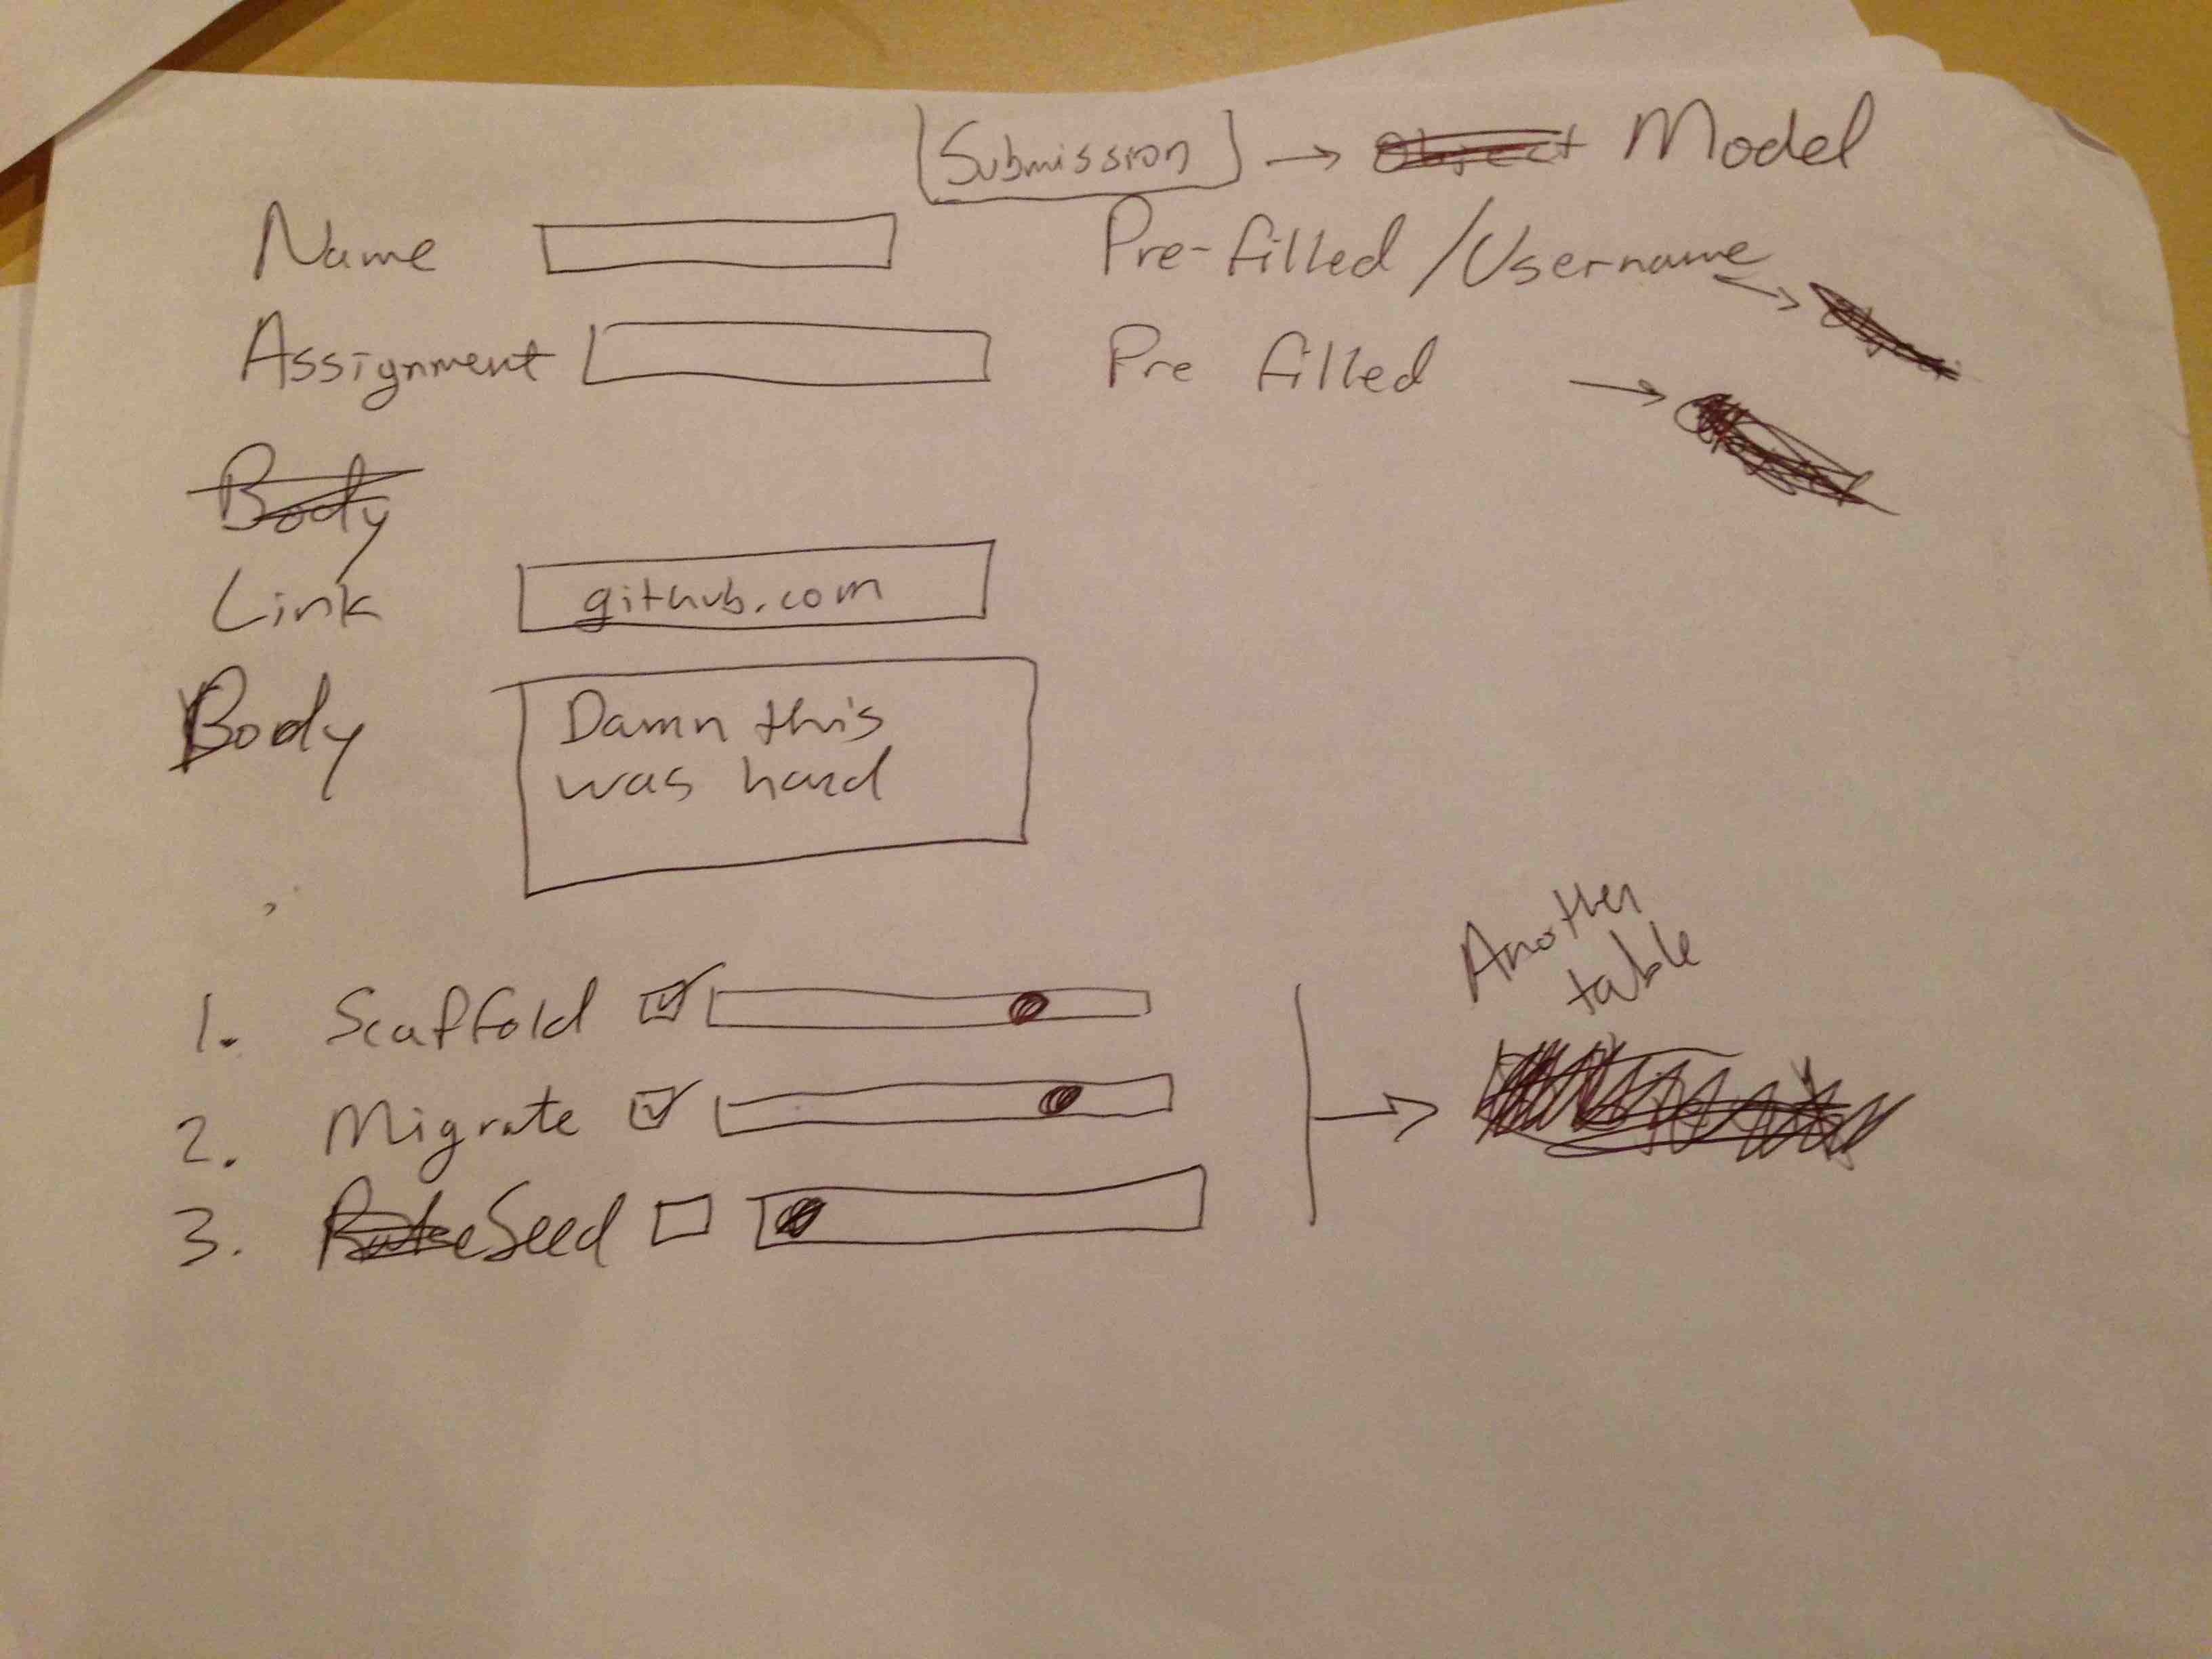 Submission → Object Model
Name Pre-filled / Username →
Assignment Pre filled →
Body
Link github.com
Body Damn this
was hard
Another
table
1. Scaffold
2. Migrate
3. Rake Seed